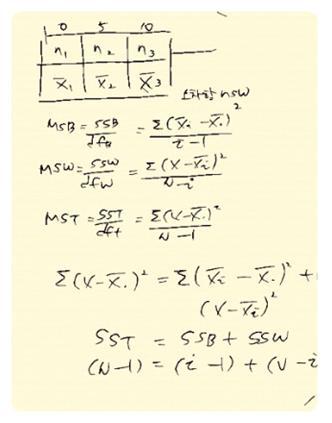 0 5 10
n₁ n₂ n₃
X̄₁ X̄₂ X̄3
MSB = SSB/dfB = Σ(X̄i - X̄.)²/i-1
MSW = SSW/dfw = Σ(X-X̄i)²/N-i
MST = SST/dft = Σ(X-X̄.)²/N-1
Σ(X-X̄.)² = Σ(X̄i - X̄.)² +
(X-X̄i)²
SST = SSB + SSW
(N-1) = (i-1) + (N-i